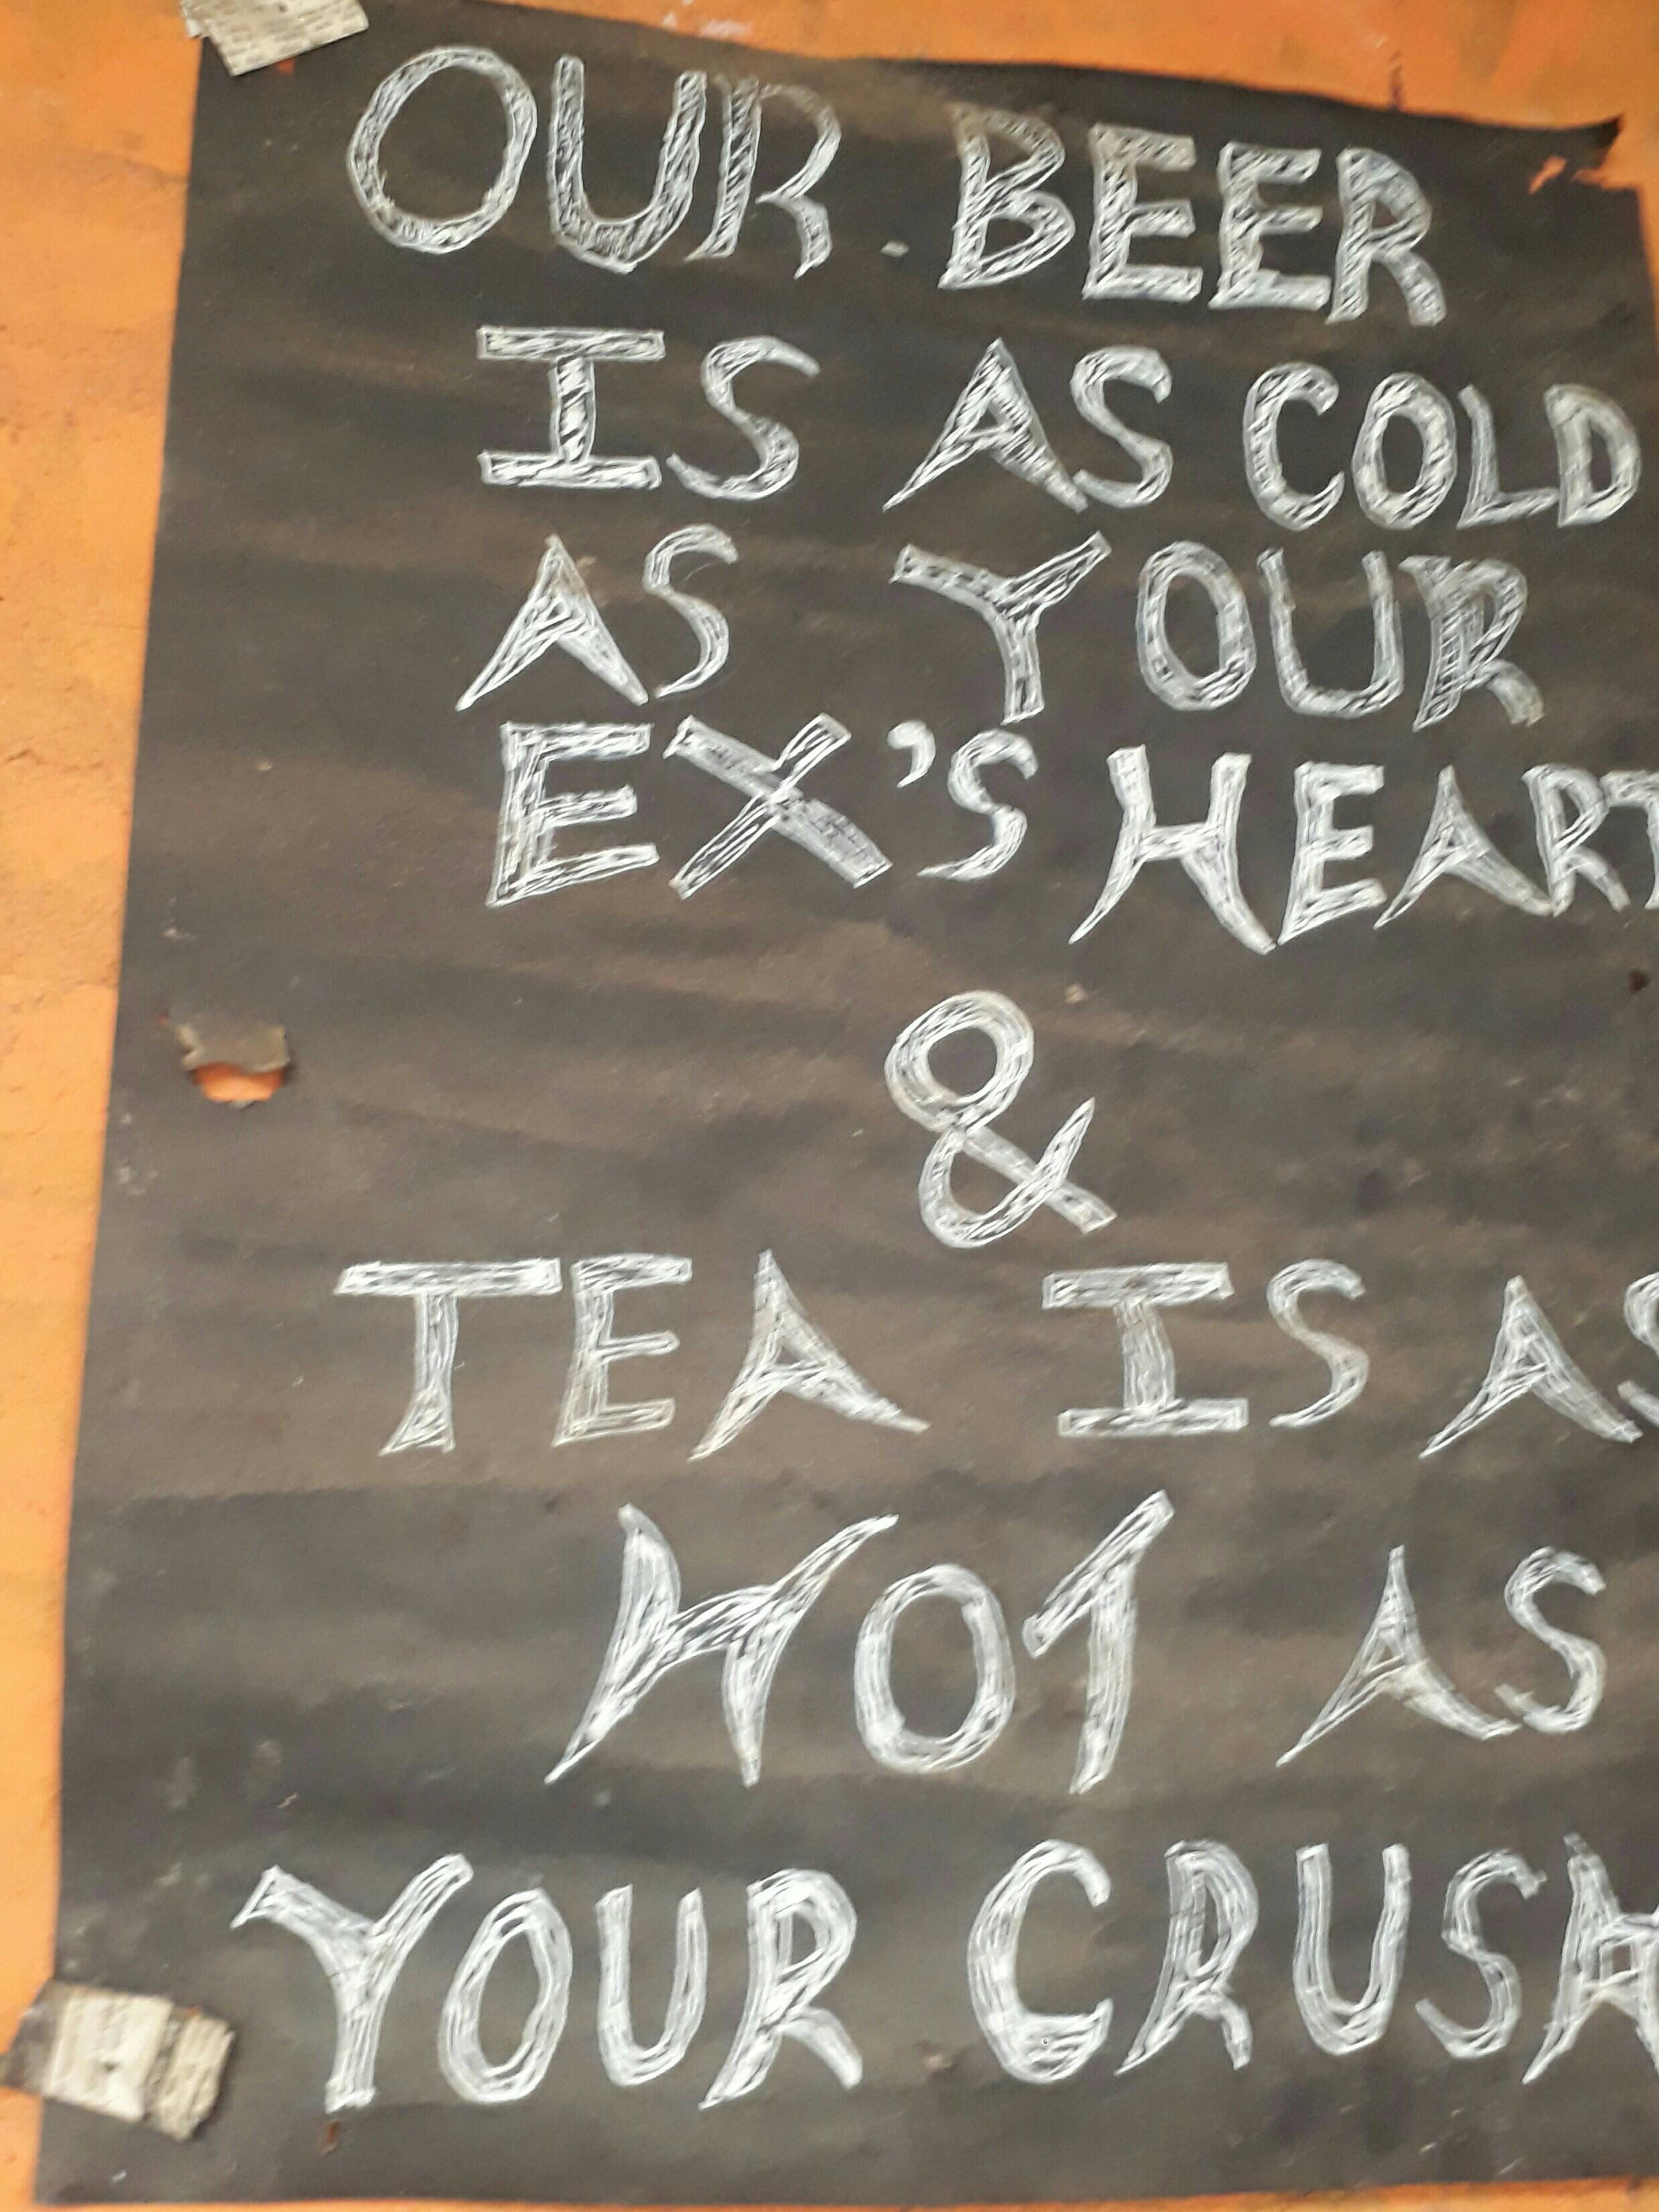 OUR BEER
IS AS COLD
AS YOUR
EX'S HEART
&
TEA IS AS
HOT AS
YOUR CRUSH